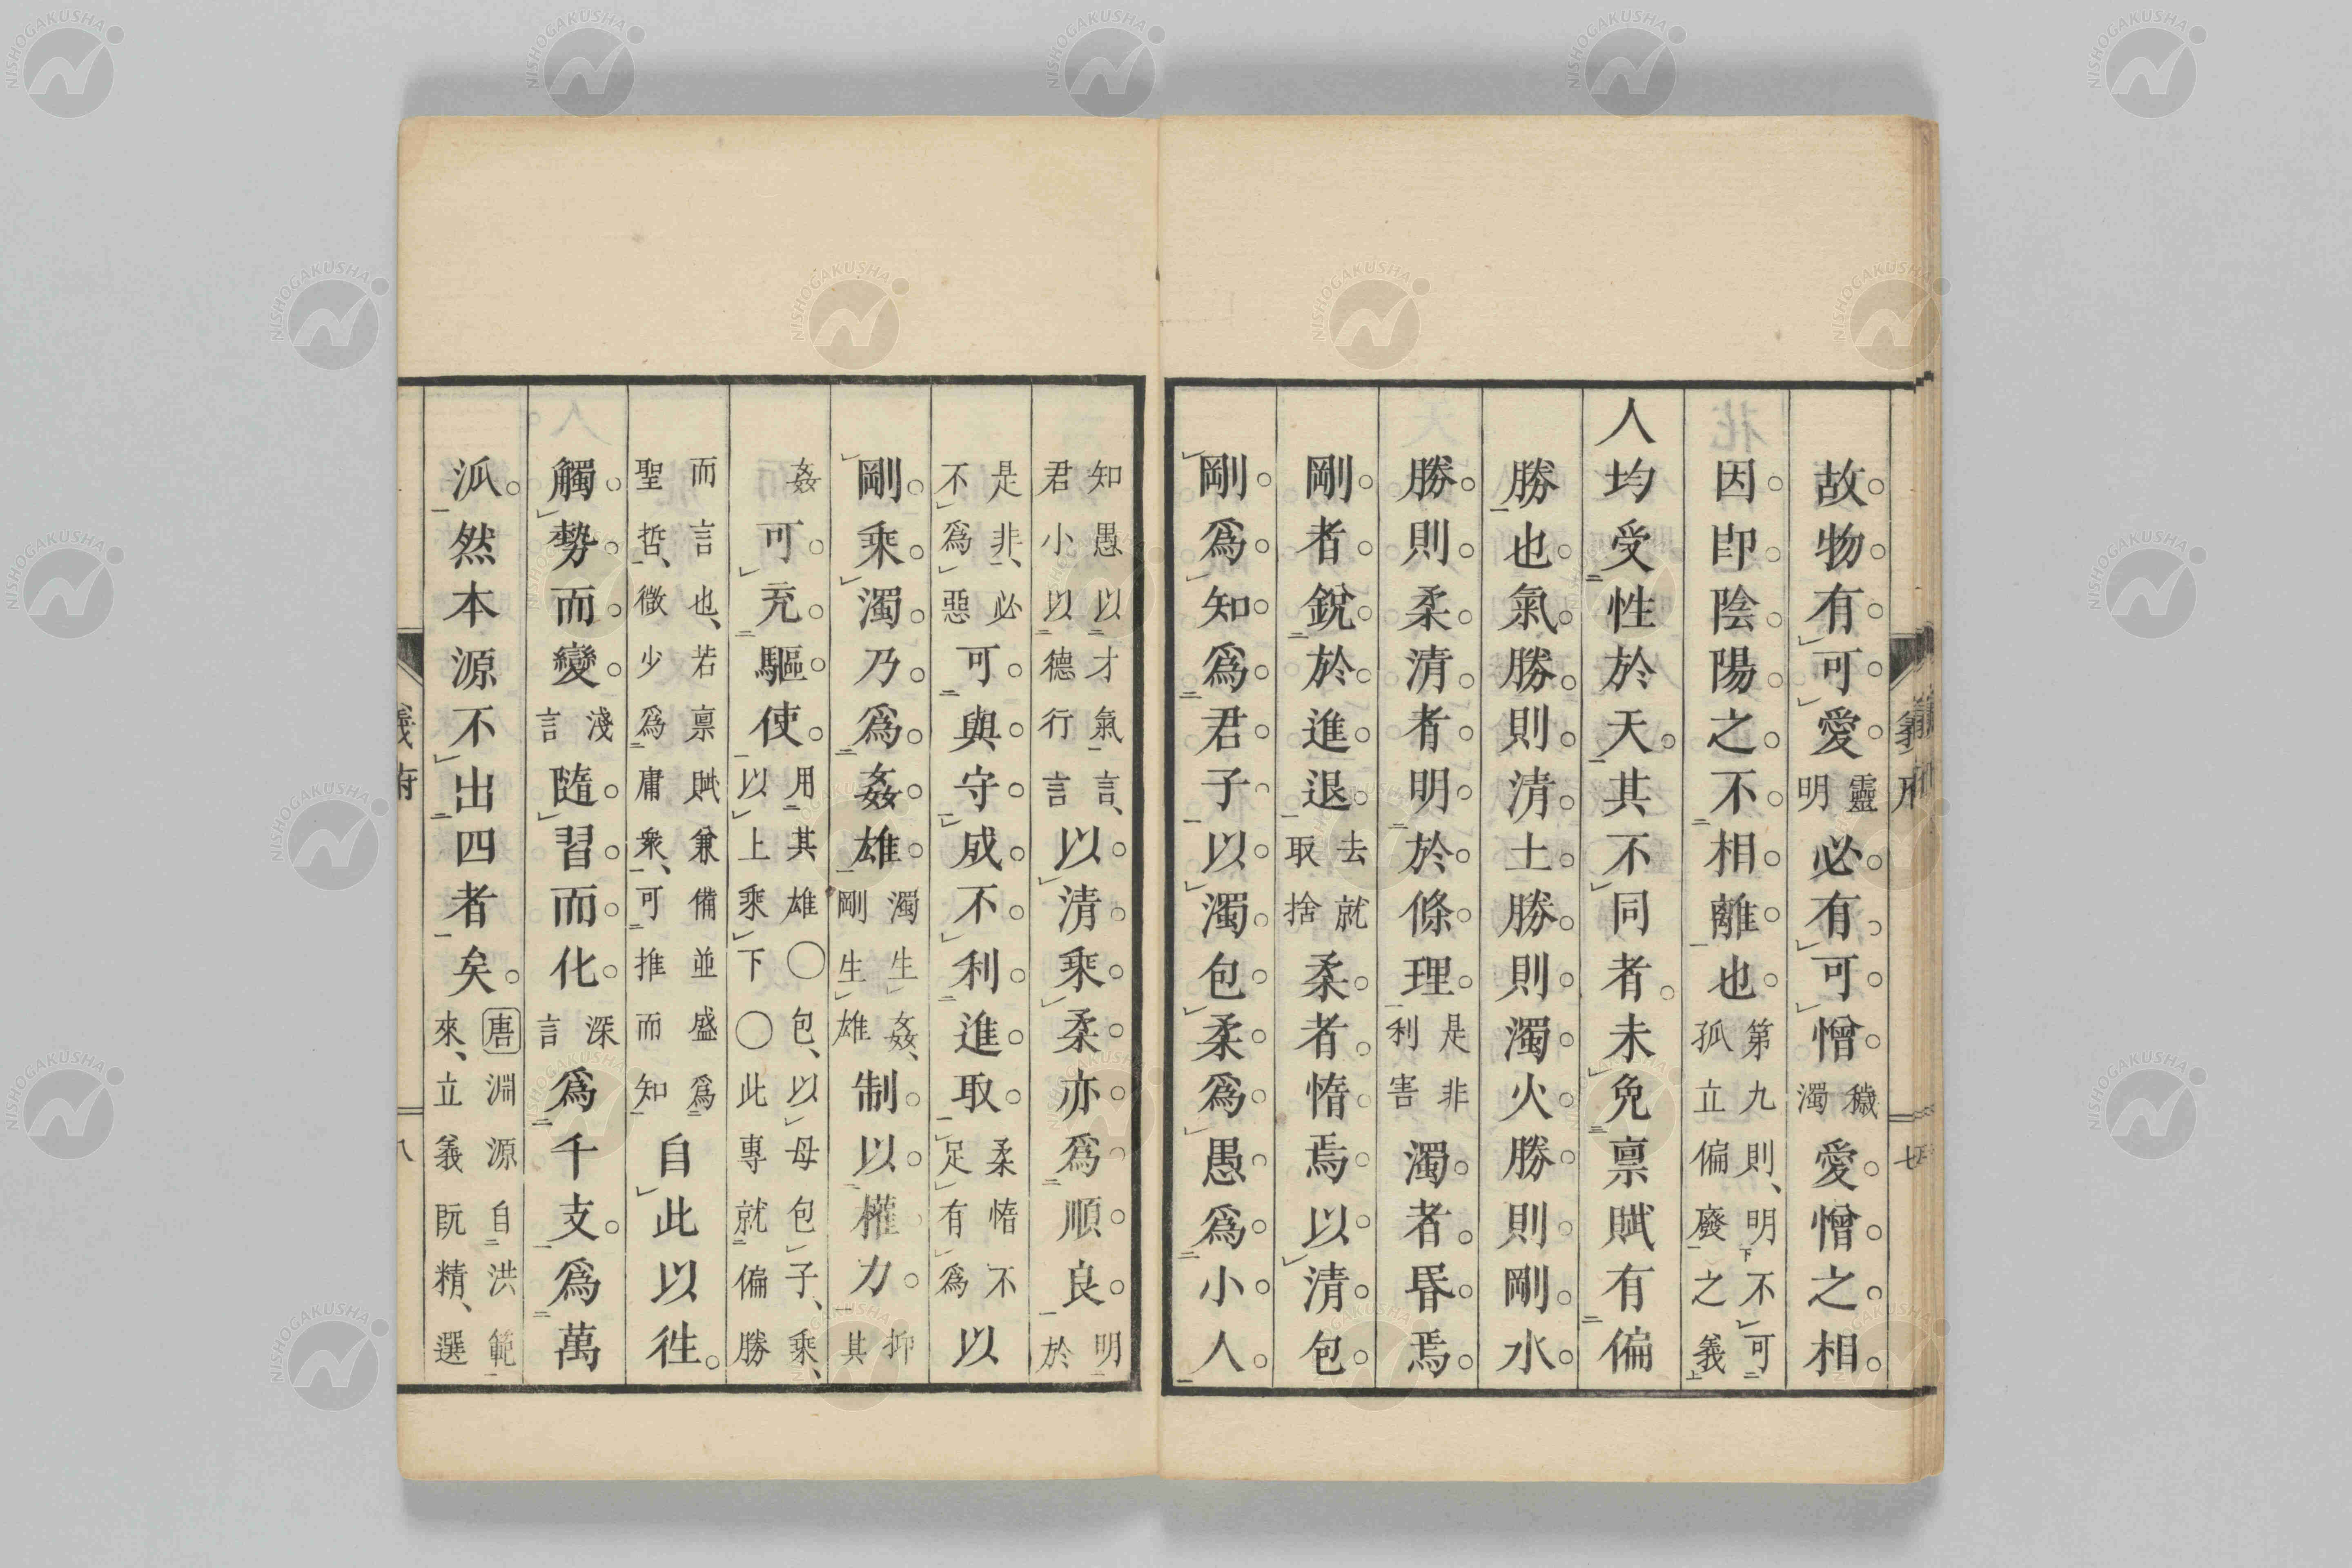 故物有可愛靈明必有可憎穢濁愛憎之相
因卽陰陽之不相離也第九則、明不可孤立偏廢之義
人均受性於天。其不同者。未免禀賦有偏
勝也氣勝則清土勝則濁火勝則剛水
勝則柔清者明於條理是非利害濁者昏焉
剛者銳於進退去就取捨柔者惰焉以清包
剛爲知爲君子以濁包柔爲愚爲小人
知愚以才氣言、君小以德行言以清乘柔亦爲順良明於
是非、必不爲惡可與守成不利進取柔惰不足有爲以
剛乘濁乃爲姦雄濁生姦、剛生雄制以權力抑其
姦可充驅使用其雄以上乘下〇包、以母包子、乘、〇此專就偏勝
而言也、若禀賦兼備並盛爲聖哲、微少爲庸衆、可推而知自此以徃。
觸勢而變淺言隨習而化深言爲千支爲萬
泒。然本源不出四者矣。唐淵源自洪範來、立義既精、選
義府
八
七
NISHOGAKUSHA